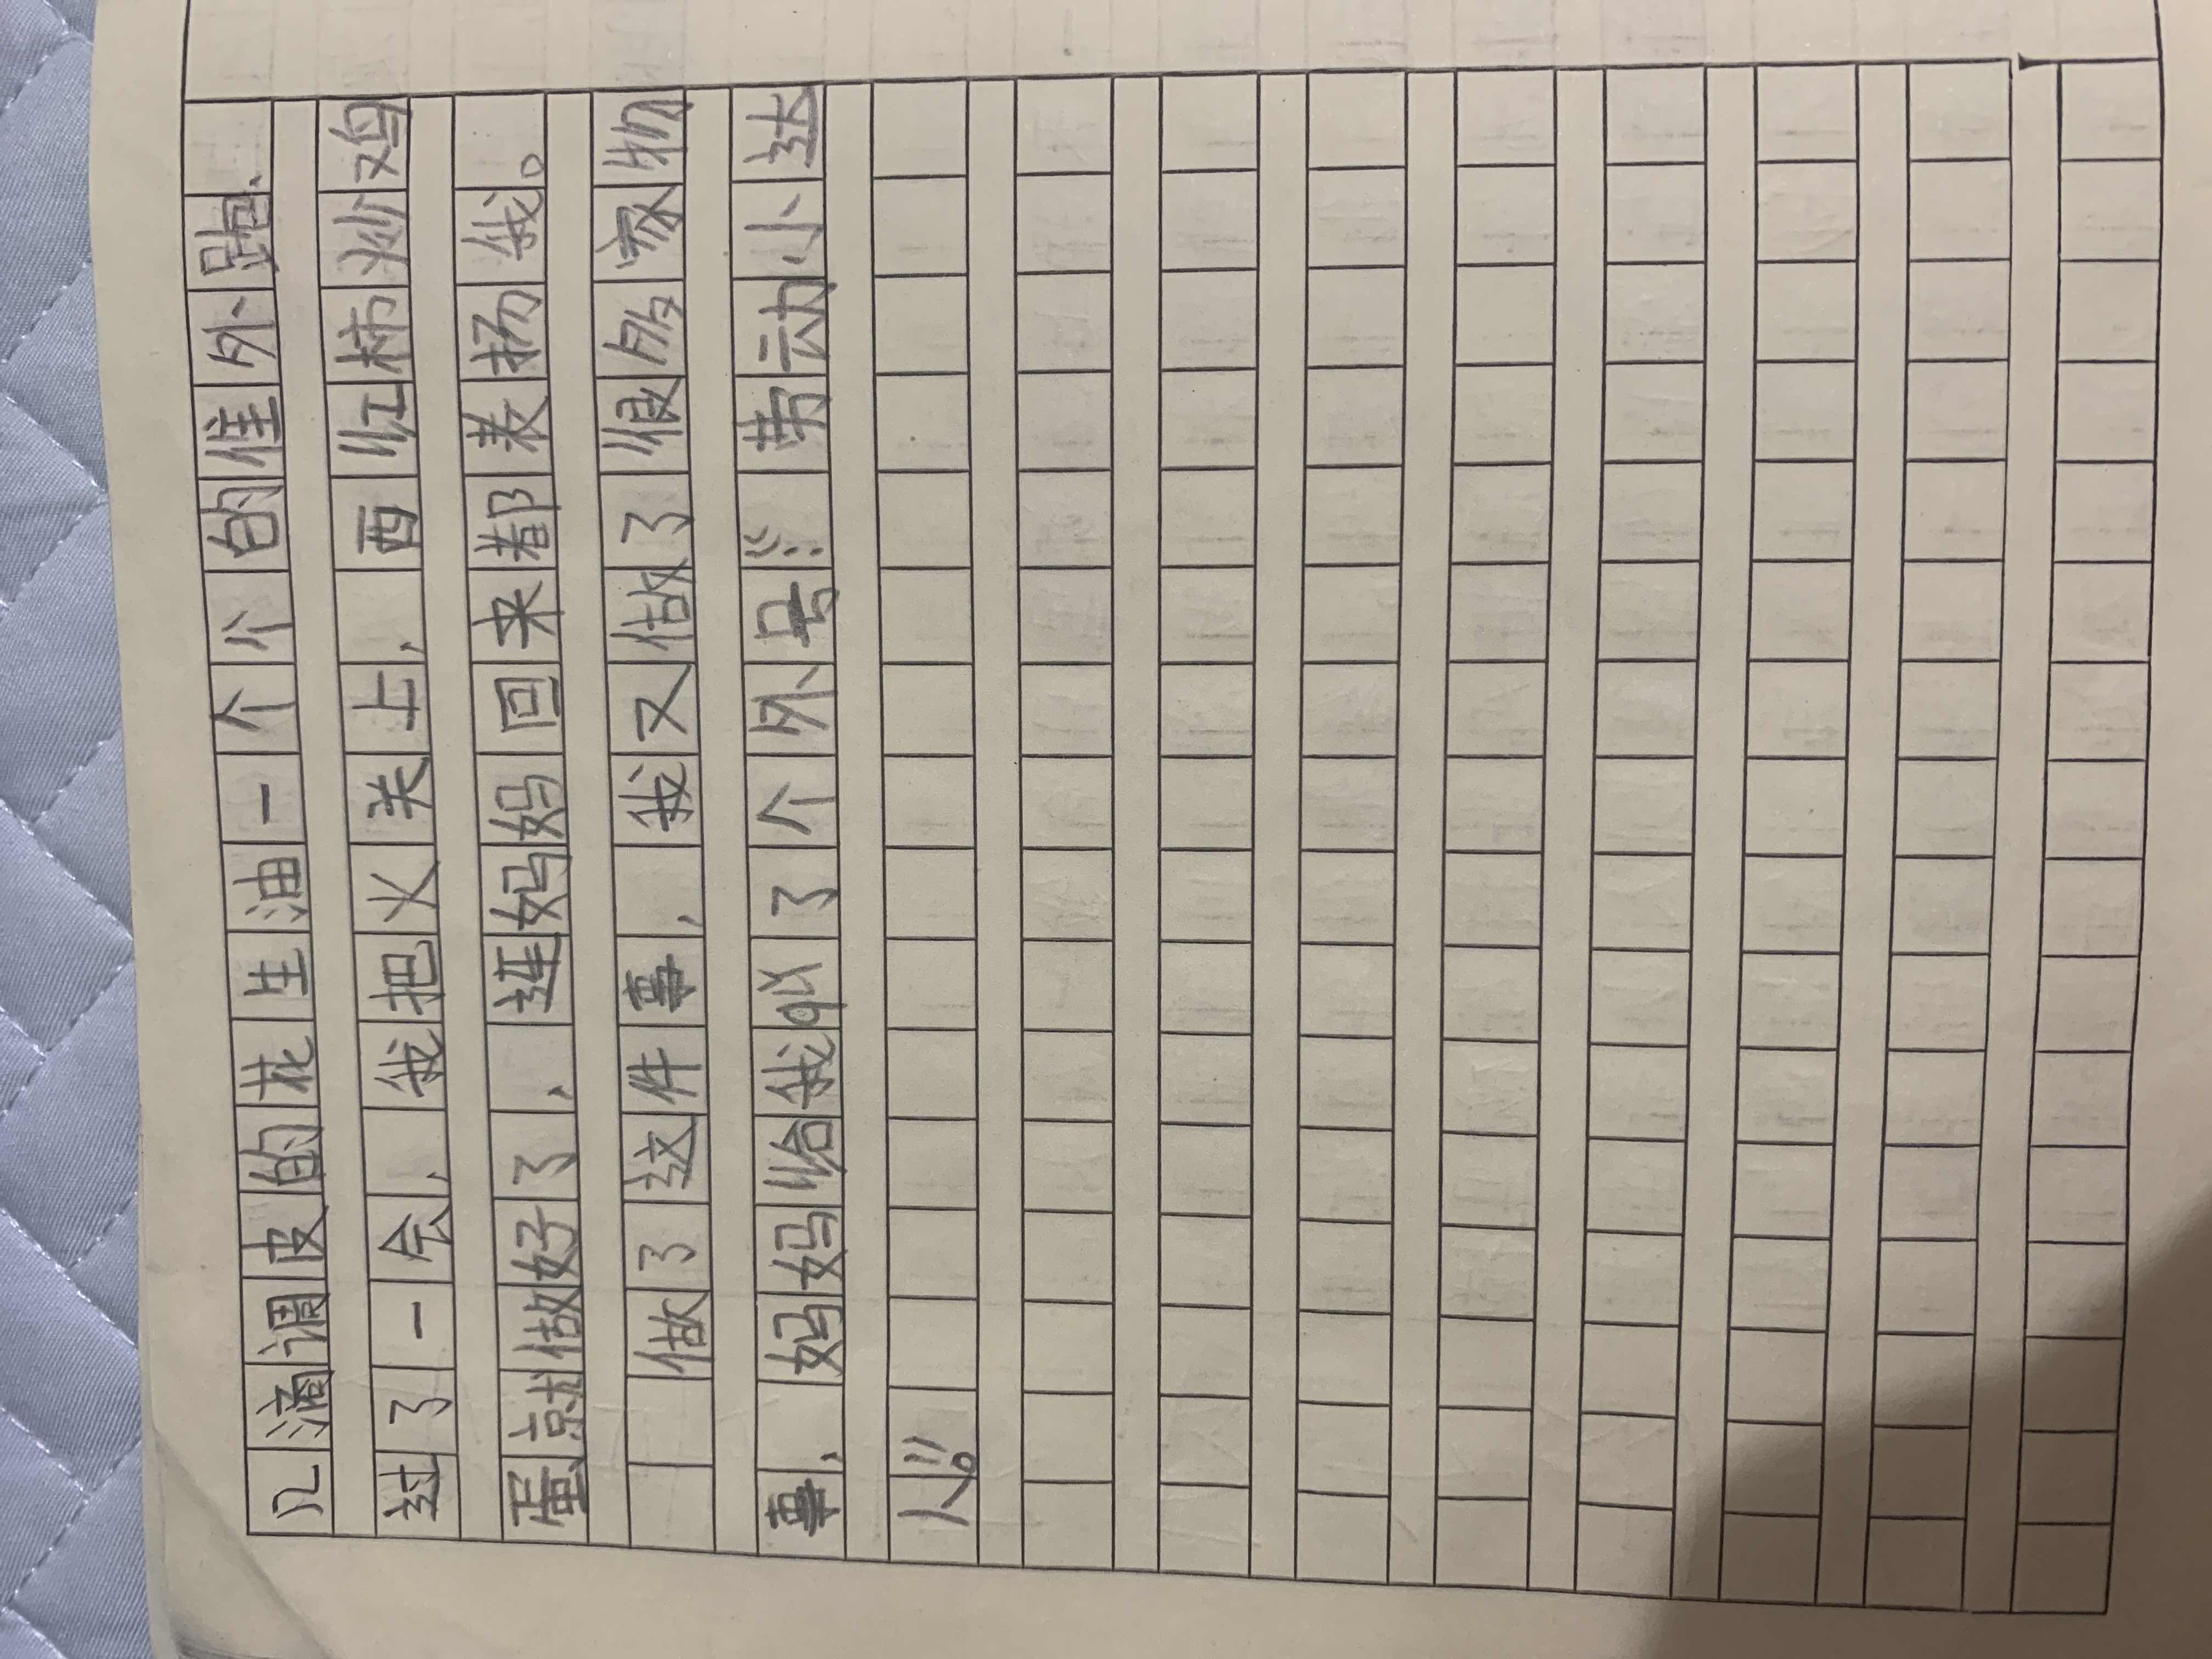 几滴调皮的花生油一个个的往外跑、
过了一会,我把火关上,西红柿炒鸡
蛋就做好了,连妈妈回来都表扬我。
做了这件事,我又做了很多家物
事,妈妈给我叫了个外号:“劳动小达
人”。